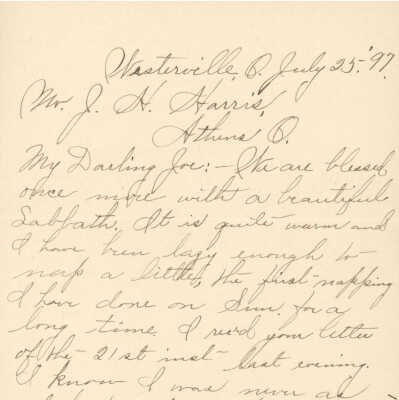 Westerville, O. July 25, '97.
Mr. J. H. Harris,
Athens O.
My Darling Joe:- We are blessed
once more with a beautiful
Sabbath. It is quite warm and
I have been lazy enough to
nap a little, the first napping
I have done on Sun. for a
long time. I rec'd your letter
of the 21st inst last evening.
I know I was never as